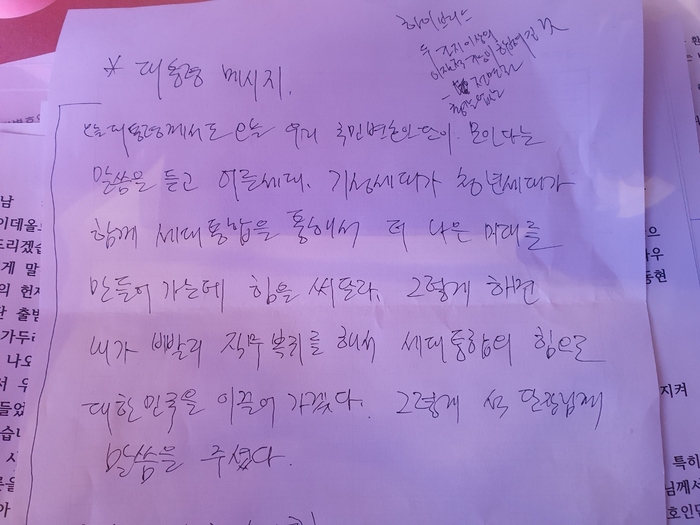 하이브리드
두 가지 이상의
* 대통령 메시지.
오늘 대통령께서도 오늘 우리 국민변호인단이 모인다는
말씀을 듣고 어른세대, 기성세대가 청년세대가
함께 세대통합을 통해서 더 나은 미래를
만들어 가는데 힘을 써달라. 그렇게 하면
내가 빨리 직무 복귀를 해서 세대통합의 힘으로
대한민국을 이끌어 가겠다. 그렇게 석 단장님께
말씀을 주셨다.
남
이데올
드리겠습
게 말
의 헌재
단 출범
가두리
나오
서 우
들었
습니
사
아
으
동현
지켜
특히
님께서
호인단